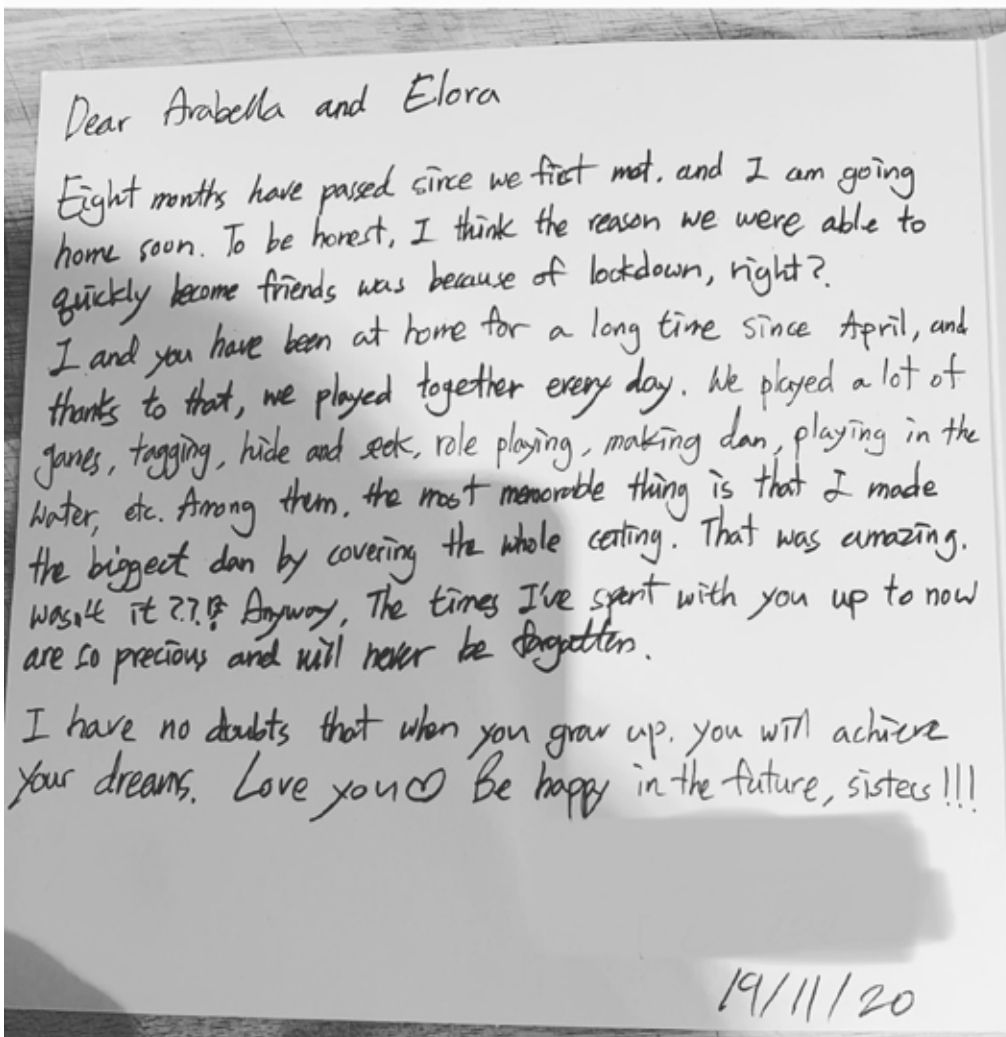 Dear Arabella and Elora
Eight months have passed since we first met. and I am going
home soon. To be honest, I think the reason we were able to
quickly become friends was because of lockdown, right?
I and you have been at home for a long time since April, and
thanks to that, we played together every day. We played a lot of
games, tagging, hide and seek, role playing, making dan, playing in the
water, etc. Among them, the most memorable thing is that I made
the biggest dan by covering the whole ceiling. That was amazing.
wasn't it ??!? Anyway, The times I've spent with you up to now
are so precious and will never be forgotten.
I have no doubts that when you grow up. you will achieve
your dreams. Love you♡ Be happy in the future, sisters!!!
19/11/20